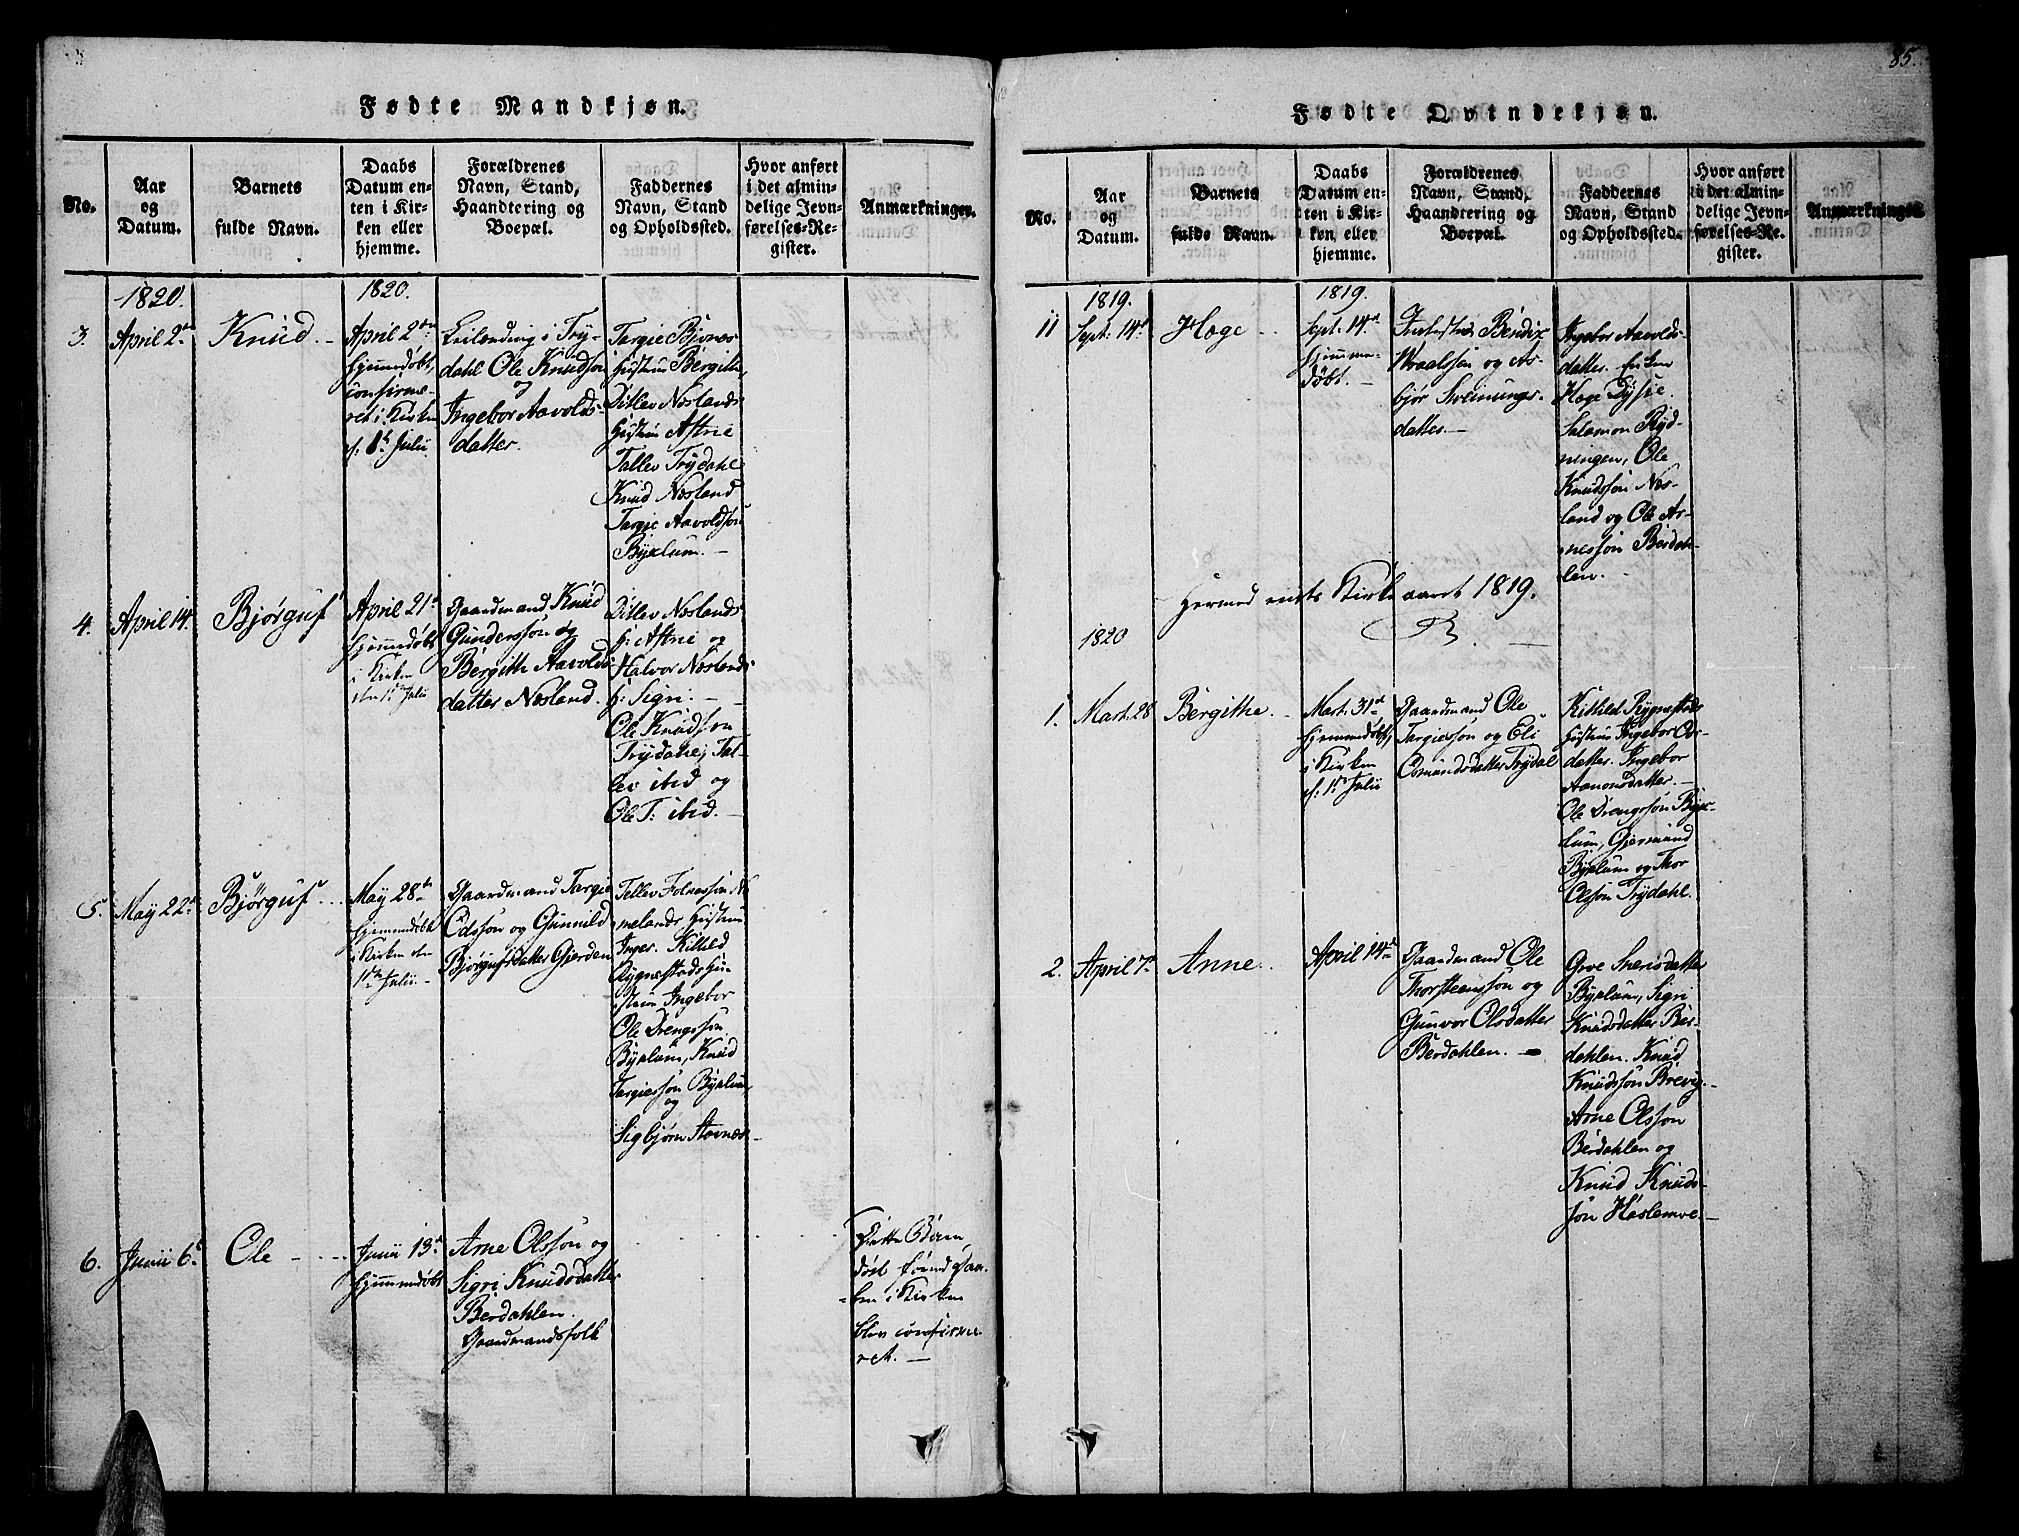 85.
Fødte Mandkjøn.
No.
Aar
og
Datum.
Barnets
fulde Navn.
Daabs
Datum en-
ten i Kir-
ken eller
hjemme.
Forældrenes
Navn, Stand,
Haandtering og
Boepæl.
Faddernes
Navn, Stand
og Opholdssted.
Hvor anført
i det almin-
delige Jevn-
førelses-Re-
gister.
Anmærkninger.
3.
1820.
April 2den
Knud.
1820.
April 2den
hjemmedøbt,
confirme-
ret i Kirken
d: 1te Julii
Leilænding i Try-
dahl Ole Knudson
og
Ingebor Aavolds-
datter.
Targie Bjones
Hustrue Bergithe,
Ditlev Næslands
Hustrue Astrie
Tallev Trydahl
Knud Næsland
Targie Aavoldsøn
Byklum.
4.
April 14.
Bjørguf
April 21de
hjemmedøbt
i Kirken
den 1te Julii
Gaardmand Knud
Gunderssøn og
Bergith Aavolds-
datter Næsland.
Ditlev Næslands
H: Astrie og
Halvor Næslands
H: Sigri.
Ole Knudsøn
Trydahl, Tal-
lev ibid og
Ole T: ibid.
5.
May 22de
Bjørguf
May 28de
hjemmedøbt
i Kirken den
1te Julii.
Gaardmand Targie
Odssøn og Gunnild
Bjørgufsdatter Gjerden
Tellev Folkessøn No-
melands Hustrue
Inger. Kittild
Rygnestads Hu-
strue Ingebor
Ole Drengssøn
Byklum, Knud
Targiessøn Byklum,
og
Sigbjørn Aavnes
6.
Junii 6te
Ole
Junii 13de
hjemmedøbt
Arne Olssøn og
Sigri Knudsdatter
Berdahlen.
Gaardmandsfolk
Dette Barn
døde førend Daa-
ben i Kirken
blev confirme-
ret.
Fødte Qvindekjøn.
No.
Aar
og
Datum.
Barnets
fulde Navn.
Daabs
Datum en-
ten i Kir-
ken eller
hjemme.
Forældrenes
Navn, Stand,
Haandtering og
Boepæl.
Faddernes
Navn, Stand
og Opholdssted.
Hvor anført
i det almin-
delige Jevn-
førelses-Re-
gister.
Anmærkninger.
11
1819.
Sept: 14de
Hoge
1819.
Sept: 14de
hjemme-
døbt.
Inderstes Bendix
Wraalssøn og As-
bjør Sveinungs-
datter.
Ingebor Aavolds-
datter. Enken
Hoge Dysie.
Salamon Ryd-
ningen, Ole
Knudssøn Næs-
land og Ole Ar-
nessøn Berdah-
len.
Hermed endes Kirke aaret 1819.
1820
1.
Mart: 28
Bergithe.
Mart: 31de
hjemmedøbt,
i Kirken
d: 1te Julii
Gaardmand Ole
Targiessøn og Eli
Osmundsdatter Trydal
Kittild Rygnestads
Hustrue Ingebor Os-
datter. Ingebor
Aamondsdatter.
Ole Drengssøn Byk-
lum, Gjermund
Byklum og Thor
Olssøn Trydahl.
2.
April 7de
Anne
April 14de
Gaardmand Ole
Thorsteenssøn og
Gunvor Olsdatter
Berdahlen.
Groe Sverisdatter
Byklum, Sigri
Knudsdatter Ber-
dahlen. Knud
Knudssøn Brevig.
Arne Olssøn
Berdahlen og
Knud Knuds-
søn Haslemoe.